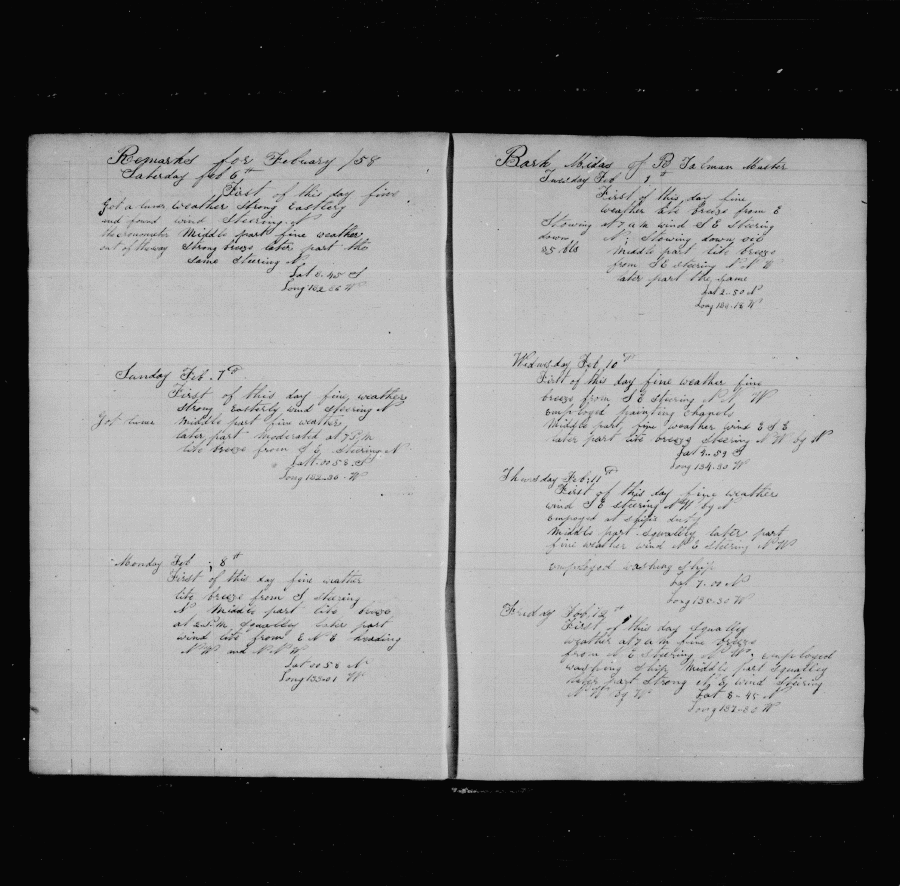 Remarks for Febuary /58
Saturday feb 6th
First of this day fine
Got a luner weather Strong Easterly
and found wind Steering N
the cronometer Middle part fine weather
out of the way Strong breeze later part the
same Steering N
Lat 6.45 S
Long 132 26 W
Sunday Feb. 7th
First of this day fine weather
Strong Easterly wind Steering N
Got luner Middle part fine weather
later part moderated at 7 P.m
lite breeze from S E, Steering N
Long 132-36 W
Monday Feb 8th
First of this day fine weather
lite breeze from S steering
N Middle part lite breeze
at 2 P.m squally later part
wind lite from E N E heading
N W and N N W
Lat 00 58 N
Long 133-01 W
Bark Midas of B Talman Master
Tuesday Feb 9th
First of this day fine
weather lite breeze from E
Stowing at 7 a m wind S E Steering
down N; Stowing down oil
85 bls Middle part lite breeze
from S E steering N N W
later part the same
Lat 2..50 N
Long 134-16 W
Wednesday Feb, 10th
First of this day fine weather fine
breeze from S E Steering N N W
Employed painting
Middle part fine weather wind E S E
later part lite breeze Steering N W by N
Long 134-30 W
Thursday Feb. 11th
First of this day fine weather
wind S E steering N W by N
Empoyed at Ships duty
Middle part squally later part
fine weather wind N E Steering N W
employed washing Ship
Lat 7.00 N
Long 136-30 W
Friday Feb. 12th
First of this day Squally
weather at 7 a m fine breeze
from N E Steering N W; employed
washing Ship Middle part Squalley
later part Strong N E wind Steering
N W by W Lat 8-45 N
Long 137-30 W